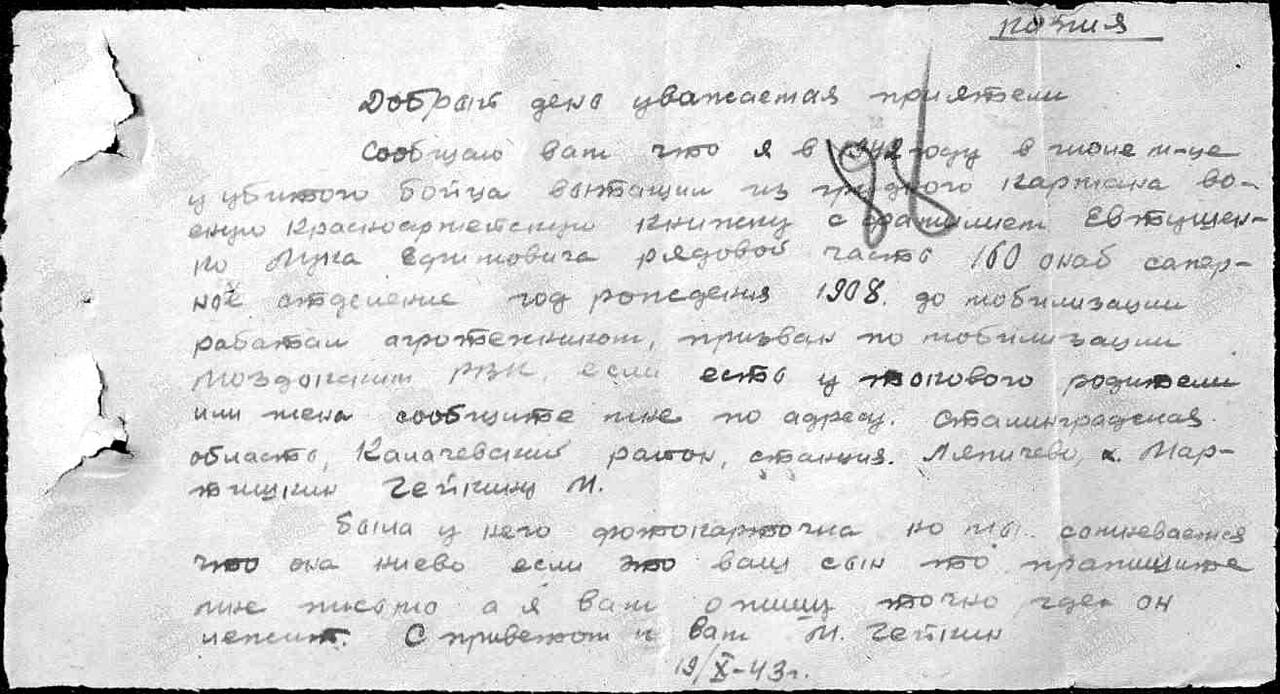 копия
Добрый день уважаемая приятели
Сообщаю вам что я в 1942 году в июле м-це
у убитого бойца вытащил из грудного кармана во-
енную Красноармейскую книжку с фамилией Евтушен-
ко Лука Ефимовича рядовой часть 160 онаб сапер-
ной отделение год рождения 1908. до мобилизации
работал агротехником, призван по мобилизации
Моздокским РВК, если есть у токового родители
или жена сообщите мне по адресу. Сталинградская
область, Калачевский район, станция. Ляпичево, х. Мар-
тишкин Чейкину М.
Была у него фотокарточка но мы сомневаемся
что она ниево если это ваш сын то прапишите
мне письмо а я вам опишу точно где он
лежит. С приветом к вам М. Чейкин
19/X-43г.
98